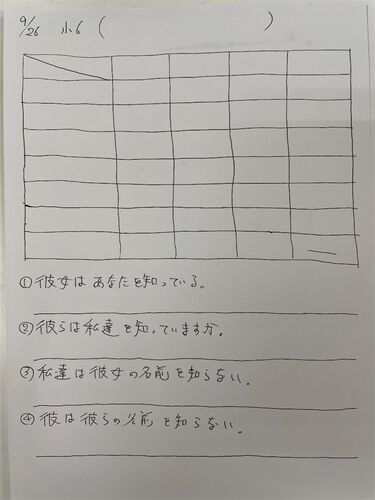 9/26 小6 (                    )
① 彼女はあなたを知っている。
② 彼らは私達を知っていますか。
③ 私達は彼女の名前を知らない。
④ 彼は彼らの名前を知らない。